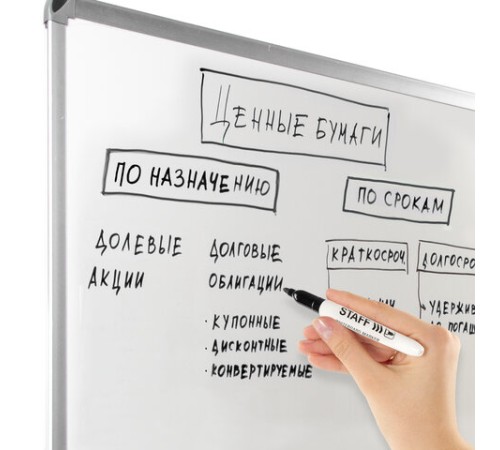 ЦЕННЫЕ БУМАГИ
ПО НАЗНАЧЕНИЮ
ПО СРОКАМ
ДОЛЕВЫЕ
АКЦИИ
ДОЛГОВЫЕ
ОБЛИГАЦИИ
· КУПОННЫЕ
· ДИСКОНТНЫЕ
· КОНВЕРТИРУЕМЫЕ
КРАТКОСРОЧ.
ДОЛГОСРО
УДЕРЖИВ
ДО ПОГАШ
STAFF